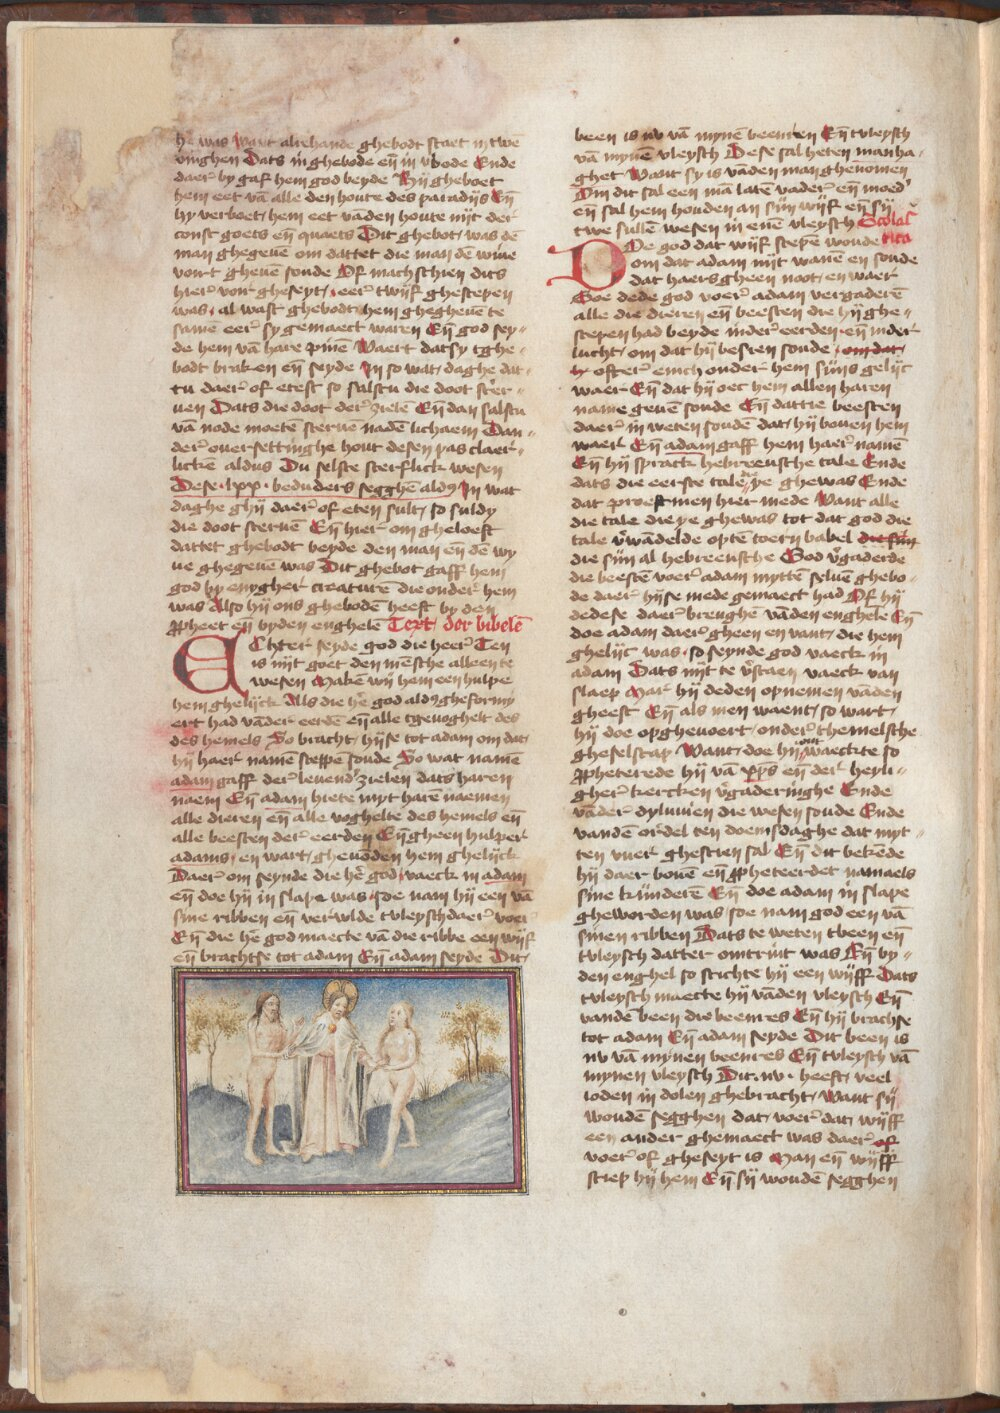 he was want alrehande ghebodt staet in twe
dinghen Dats in ghebode en̄ in v̓bode Ende
daer by gaf hem god beyde Hij gheboet
hem eet vā alle den houte des paradijs En̄
hy verboet hem eet vāden houte nijt der
const goets en̄ quaets Dit ghebot was dē
man ghegeuē om dattet die man dē wiue
vort gheuē soude Of machschien dits
hier voir gheseyt eer twijf ghescepen
was al wast ghebodt hem ghegheuē te
samē eer sy gemaect waren En̄ god sey-
de hem vā hare pinē Waert dat sy tghe-
bodt braken en̄ seyde In so wat daghe dat
tu daer of etest so salstu die doot ster-
uen Dats die doot der zielē En̄ dan salstu
vā node moetē sterue nadē lichaem Dan-
der ouersettinghe hout desen pas claer-
lickē aldus Du selste sterflick wesen
Dese lxx beduders segghē aldꝰ In wat
daghe ghij daer of eten sult so suldy
die doot steruē En̄ hier om gheloeft
dattet ghebodt beyde den man en̄ dē wy
ue ghegeuē was Dit ghebot gaff hem
god by enygher creaturē die onder hem
was Also hij ons ghebodē heeft by den
ꝓpheet en̄ byden enghelē Text der bibelē
EChter seyde god die heer Ten
is nijt goet den mēsche alleen te
wesen Makē wij hem een hulpe
hem ghelijck Als die hē god aldꝰ gheformy
ert had vāder eerdē en̄ alle tgeuoghelt des
des hemels So bracht hijse tot adam om dat
hij haer namē sceppē soude So wat namē
adam gaff der leuend zielen dats haren
naem En̄ adam hiete myt harē naemen
alle dieren en̄ alle voghelte des hemels en̄
alle beesten der eerden En̄ gheen hulper
adams en wart gheuōden hem ghelijck
Daer om seynde die hē god vaeck in adam
en̄ doe hij in slape was soe nam hij een vā
sine ribben en̄ vervulde tvleysch daer voer
En̄ die hē god maecte vā die ribbe een wijf
en̄ brachtse tot adam En̄ adam seyde Dit
been is nv vā mynē beenren En̄ tvleysch
vā mynē vleysch Dese sal heten manha-
ghet Want sy is vāden man ghenomen
Om dit sal een mā latē vader en̄ moed
en̄ sal hem houden an sijn wijf en̄ sij
twe sullē wesen in enē vleysch Scolas
DOe god dat wijf scepē woude tica
om dat adam nijt wanē en soude
dat haers gheen noot en waer
Soe dede god voer adam vergaderē
alle die dieren en̄ beesten die hij ghe-
scepen had beyde inder eerden en̄ inder
lucht om dat hij besien soude om dat
hy ofter enich onder hem sijns gelijc
waer En̄ dat hij oec hem allen haren
name geuē soude En̄ dattie beesten
daer in weten soudē dat hij bouen hem
waer En̄ adam gaff hem haer namē
En̄ hij sprack hebreeusche tale Ende
dats die eerste tale die ye ghewas Ende
dat proeftmen hier mede Want alle
die tale die ye ghewas tot dat god die
tale v̓wādelde optē toern babel die sijn
die sijn al hebreeusche God v̓gaderde
die beestē voer adam myttē seluē ghebo-
de daer hijse mede gemaect had Of hij
dedese daer brenghē vāden enghelē En̄
doe adam daer gheen en vant die hem
ghelijc was so seynde god vaeck in
adam Dats nijt te v̓staen vaeck van
slaep Mar hij deden opnemen vāden
gheest En̄ als men waent so wart
hij doe opgheuoert onder themelsche
gheselscap Want doe hij ontwaeckte so
ꝓpheterede hij vā xp̄s en̄ der heyli-
gher kercken v̓gaderinghe Ende
vāder dyluuien die wesen soude Ende
vandē ordel ten doemsdaghe dat myt
ten vuer ghescien sal En̄ dit bekēde
hij daer bouē en̄ ꝓpheteerdet namaels
sine kinderē En̄ doe adam in slape
gheworden was soe nam god een vā
sinen ribben Dats te weten tbeen en̄
tvleysch datter omtrint was En̄ by
den enghel so stichte hij een wijff Dats
tvleysch maecte hij vāden vleysch En̄
vandē been die beenres En̄ hij brachse
tot adam En̄ adam seyde Dit been is
nv vā mynen beenres En̄ tvleysch vā
mynen vleysch Dit nv heeft veel
ioden in dolen ghebracht Want sij
woudē segghen dat voer dat wijff
een ander ghemaect was daer of
voer of gheseyt is Man en̄ wijff
sciep hij hem En̄ sij woudē segghen